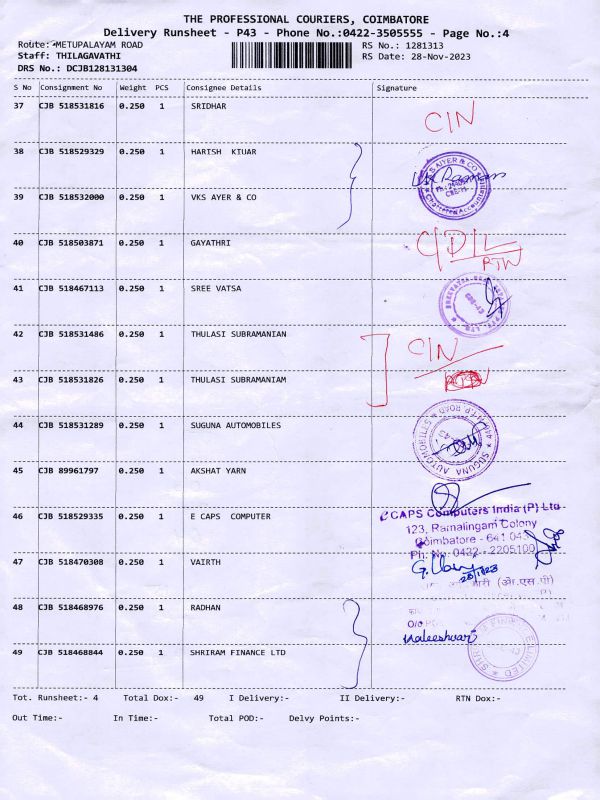 THE PROFESSIONAL COURIERS, COIMBATORE
Delivery Runsheet - P43 - Phone No.:0422-3505555 - Page No.:4
Route: METUPALAYAM ROAD RS No.: 1281313
Staff: THILAGAVATHI RS Date: 28-Nov-2023
DRS No.: DCJB128131304
S No Consignment No Weight PCS Consignee Details Signature
37 CJB 518531816 0.250 1 SRIDHAR CIN
38 CJB 518529329 0.250 1 HARISH KIUAR
39 CJB 518532000 0.250 1 VKS AYER & CO
40 CJB 518503871 0.250 1 GAYATHRI C/D/L
RTN
41 CJB 518467113 0.250 1 SREE VATSA
42 CJB 518531486 0.250 1 THULASI SUBRAMANIAN CIN
43 CJB 518531826 0.250 1 THULASI SUBRAMANIAM
44 CJB 518531289 0.250 1 SUGUNA AUTOMOBILES SUGUNA AUTOMOBILES
45 CJB 89961797 0.250 1 AKSHAT YARN
46 CJB 518529335 0.250 1 E CAPS COMPUTER eCAPS Computers India (P) Ltd
123, Ramalingam Colony
Coimbatore - 641 043
Ph: No: 0422 - 2205100
47 CJB 518470308 0.250 1 VAIRTH
48 CJB 518468976 0.250 1 RADHAN
Kaleeshwari
49 CJB 518468844 0.250 1 SHRIRAM FINANCE LTD
Tot. Runsheet:- 4 Total Dox:- 49 I Delivery:- II Delivery:- RTN Dox:-
Out Time:- In Time:- Total POD:- Delvy Points:-